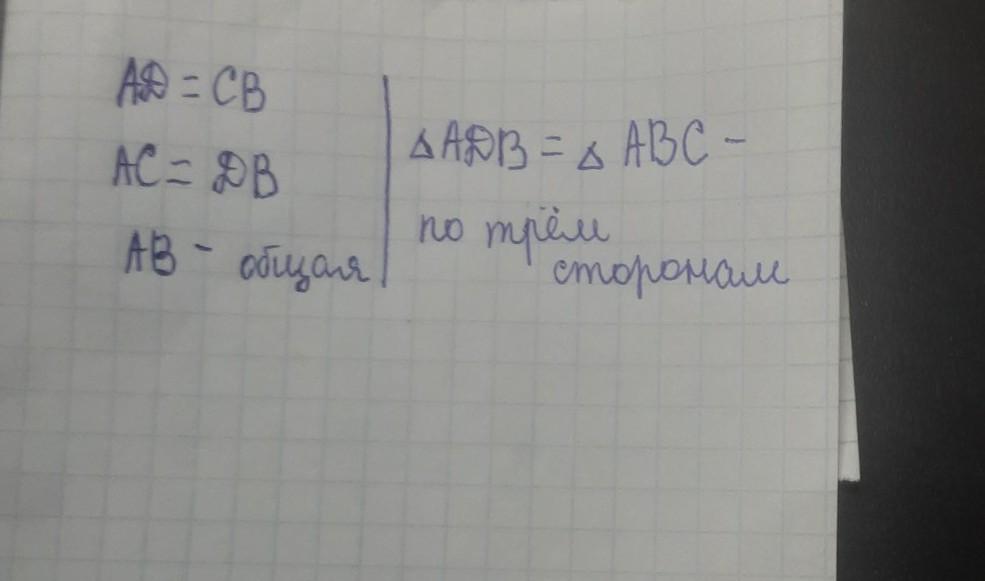 AD = CB
AC = DB
AB - общая
△ADB = △ABC -
по трём
сторонам